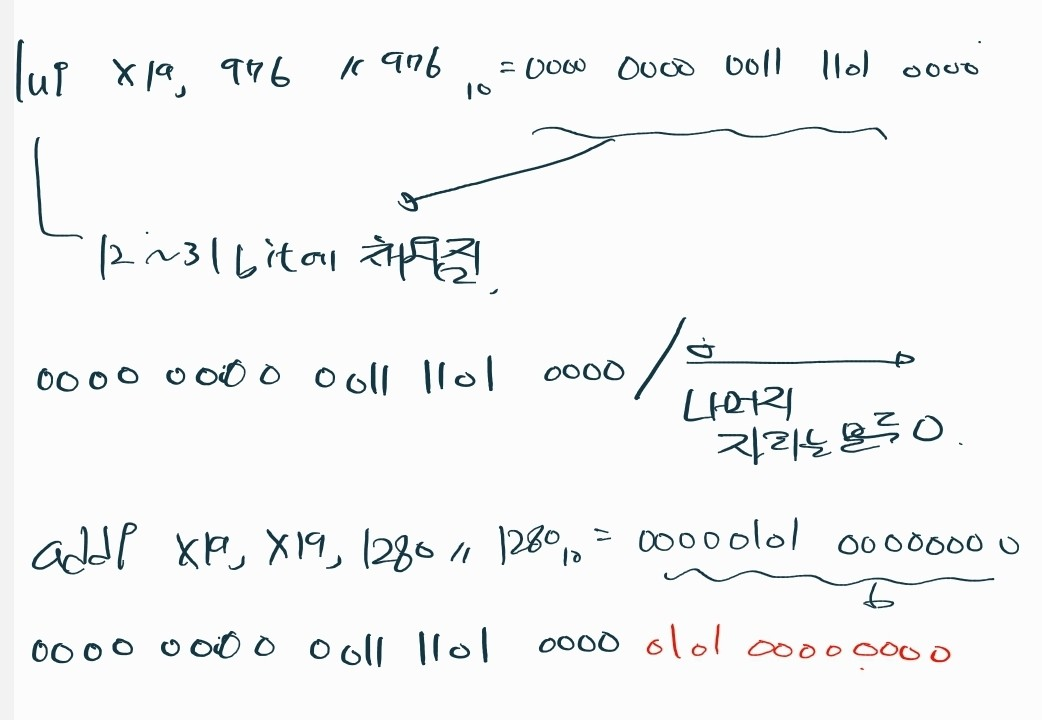 lui x19, 976 // 976₁₀ = 0000 0000 0011 1101 0000
12~31 bit에 채워짐.
0000 0000 0011 1101 0000 /
나머지
자리는 모두 0.
addi x19, x19, 1280 // 1280₁₀ = 00000101 00000000
0000 0000 0011 1101 0000 0101 00000000